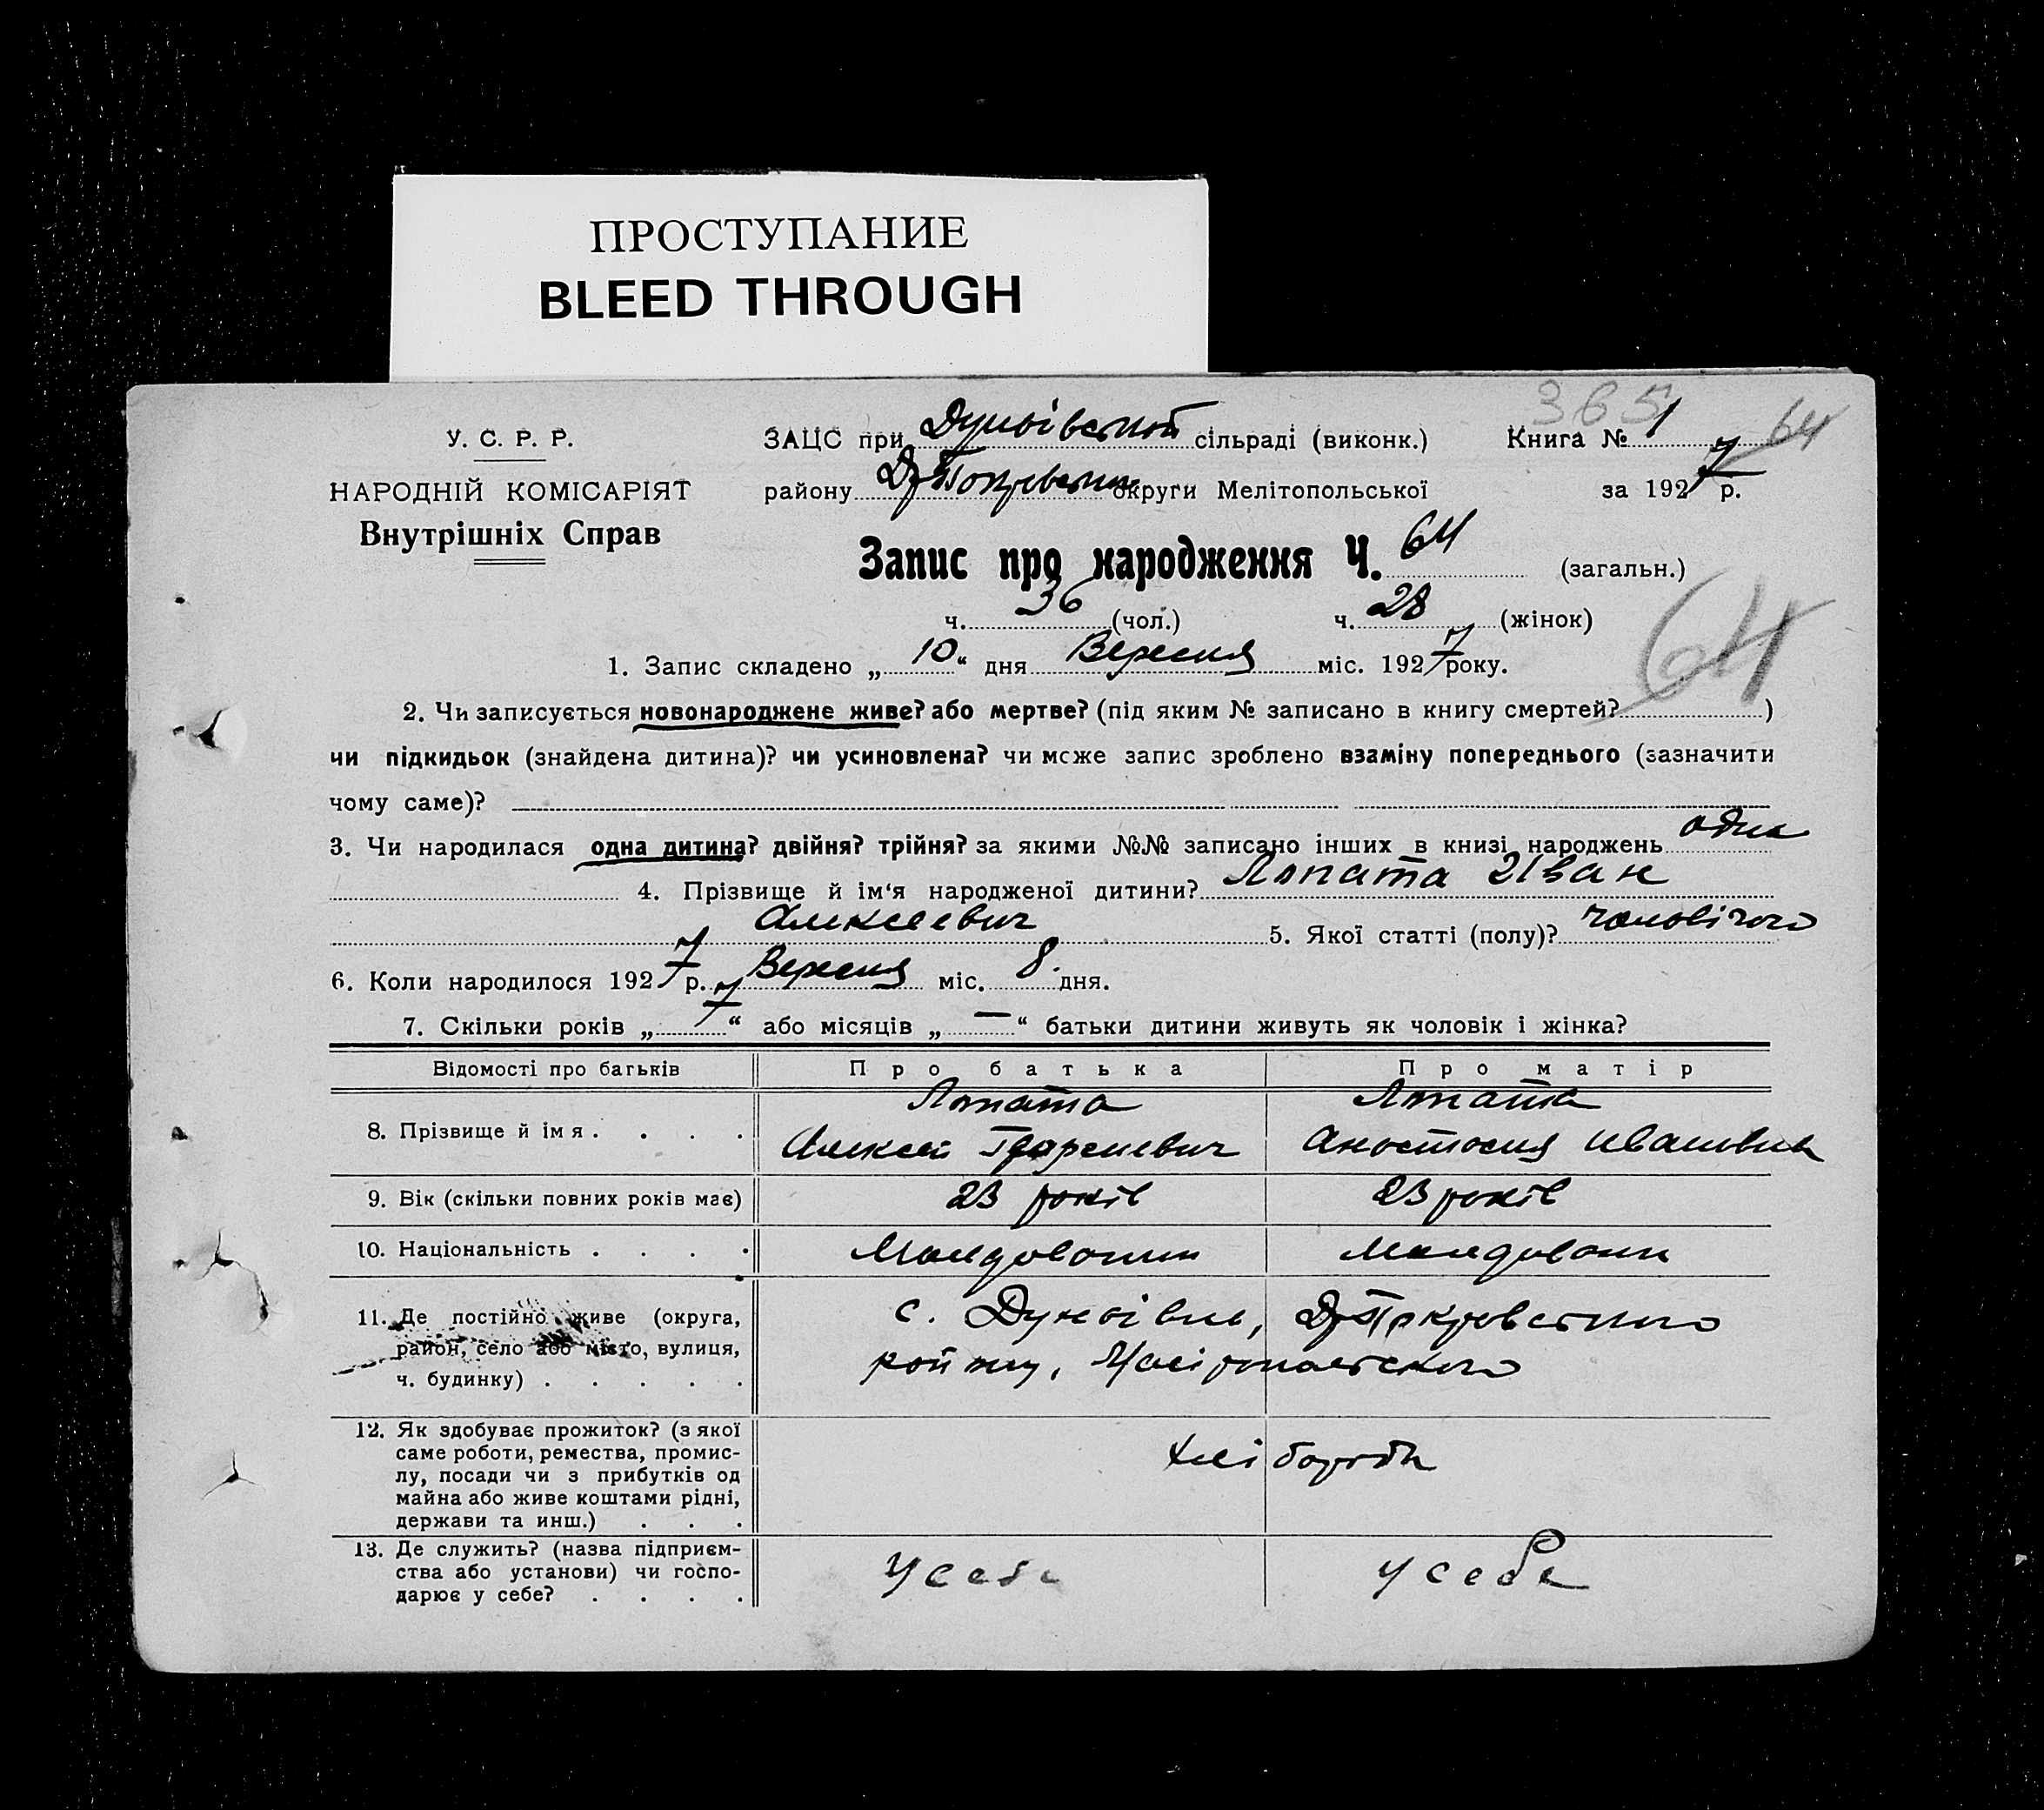 ПРОСТУПАНИЕ
BLEED THROUGH
365
У. С. Р. Р.
ЗАЦС при сільраді (виконк.)
Книга № 1 64
НАРОДНІЙ КОМІСАРІЯТ
району округи Мелітопольської
за 1927 р.
Внутрішніх Справ
Запис про народження Ч. 64 (загальн.)
ч. 36 (чол.) ч. 28 (жінок)
64
1. Запис складено „ 10 “ дня Вересня міс. 1927 року.
2. Чи записується новонароджене живе? або мертве? (під яким № записано в книгу смертей? )
чи підкидьок (знайдена дитина)? чи усиновлена? чи може запис зроблено взаміну попереднього (зазначити
чому саме)?
3. Чи народилася одна дитина? двійня? трійня? за якими №№ записано інших в книзі народжень одна
4. Прізвище й ім‘я народженої дитини? Лопата Иван
Алексеевич 5. Якої статті (полу)? чоловічого
6. Коли народилося 1927 р. Вересня міс. 8 дня.
7. Скільки років „ 7 “ або місяців „ — “ батьки дитини живуть як чоловік і жінка?
Відомості про батьків Про батька Про матір
8. Прізвище й імя . . . .
Лопата
Алексей
Лопата
Анастасия Ивановна
9. Вік (скільки повних років має) 23 років 23 років
10. Національність . . . .
11. Де постійно живе (округа,
район, село або місто, вулиця,
ч. будинку) . . . . .
с. району,
12. Як здобуває прожиток? (з якої
саме роботи, ремества, промис-
лу, посади чи з прибутків од
майна або живе коштами рідні,
держави та инш.) . . .
хлібороби
13. Де служить? (назва підприєм-
ства або установи) чи госпо-
дарює у себе? . . . .
У себе
У себе